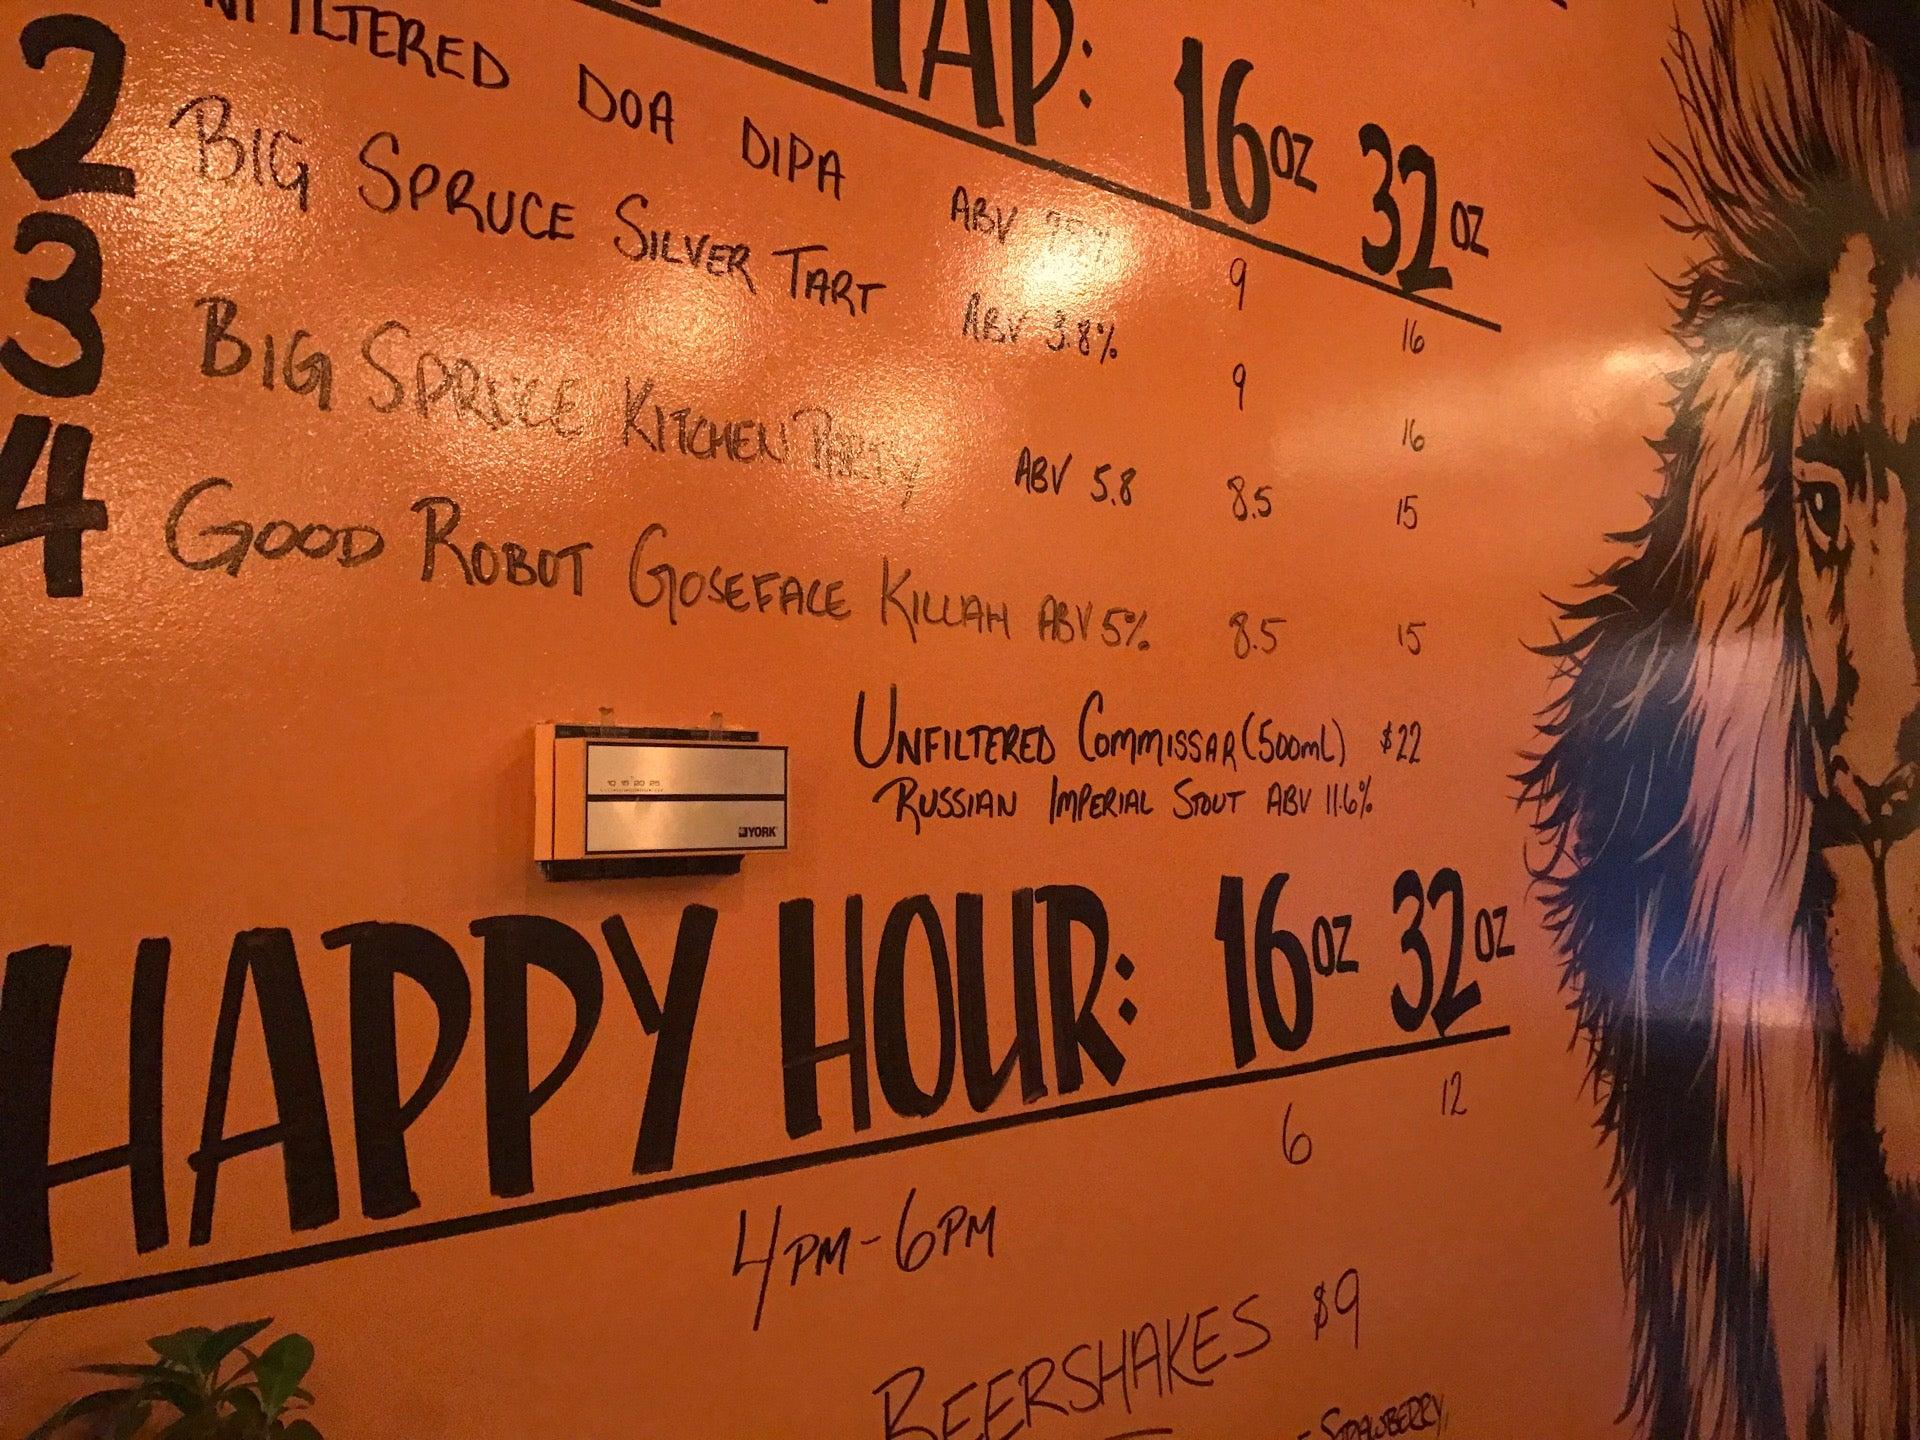 TAP: 16OZ 32OZ
UNFILTERED DOA DIPA ABV 9 16
2 BIG SPRUCE SILVER TART ABV 3.8% 9 16
3 BIG SPRUCE KITCHEN PARTY ABV 5.8 8.5 15
4 GOOD ROBOT GOSEFACE KILLAH ABV 5% 8.5 15
UNFILTERED COMMISSAR (500mL) $22
RUSSIAN IMPERIAL STOUT ABV 11.6%
10 15 20 25
YORK
HAPPY HOUR: 16OZ 32OZ
6 12
4PM-6PM
BEERSHAKES $9
- STRAWBERRY,